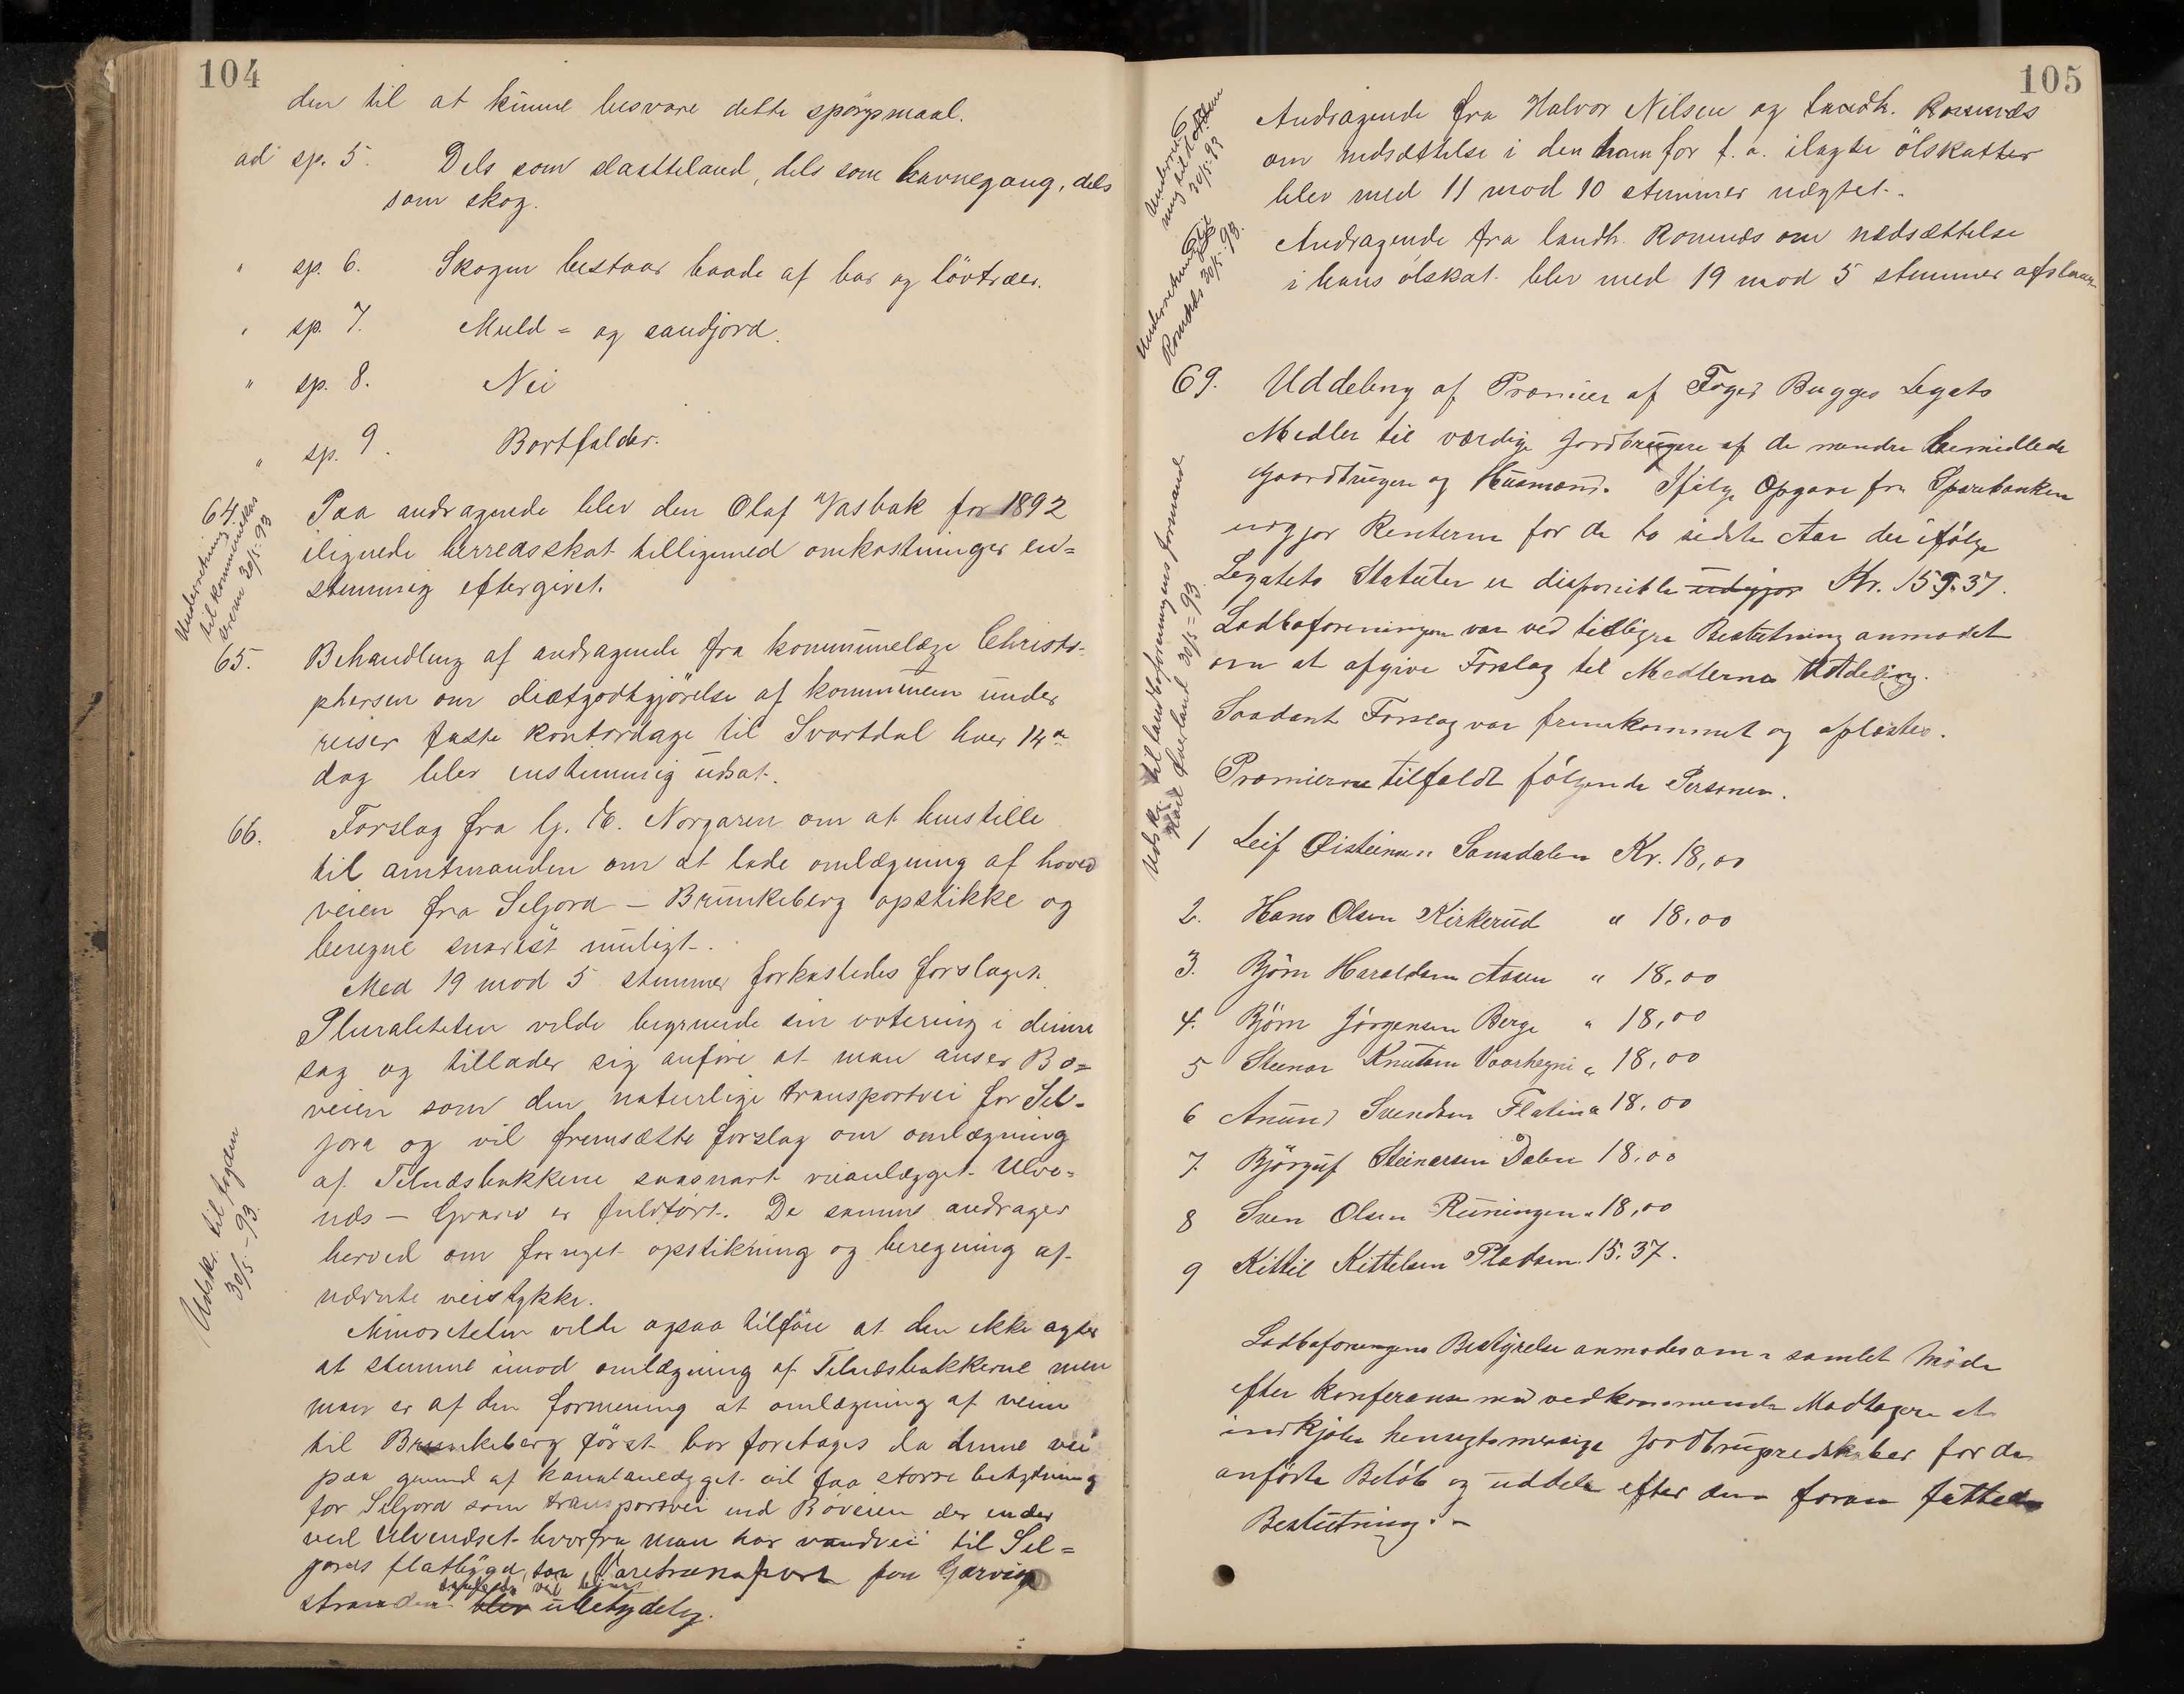 104
den til at kunne besvare dette spörgsmaal.
ad sp. 5. Dels som slaatteland, dels som havnegang, dels
som skog.
" sp. 6. Skogen bestaar baade af bar og lövtræer.
" sp. 7. Muld- og sandjord.
" sp. 8. Nei
" sp. 9. Bortfalder.
64. Paa andragende blev den Olaf Vasbak for 1892
ilignede herredsskat tilligemed omkostninger en-
stemmig eftergivet.
Underretning
til kommunekas
sereren 30/5-93
65. Behandling af andragende fra kommunelæge Christo-
phersen om diætgodtgjörelse af kommunen under
reiser faste kontordage til Svartdal hver 14de
dag blev enstemmig udsat.
66. Forslag fra G. E. Norgaren om at henstille
til amtmanden om at lade omlægning af hoved
veien fra Seljord - Brunkeberg opstikke og
beregne snarest muligt.
Med 19 mod 5 stemmer forkastedes forslaget.
Pluraliteten vilde begrunde sin votering i denne
sag og tillader sig anföre at man anser Bö-
veien som den naturlige transportvei for Sel-
jord og vil fremsætte forslag om omlægning
af Telnæsbakkene saasnart veianlægget Ulve-
næs - Gvarv er fuldfört. De samme andrager
herved om fornyet opstikning og beregning af
nævnte veistykke.
Udskr. til fogden
30/5-93.
Minoriteten vilde ogsaa tilföie at den ikke agter
at stemme imod omlægning af Telnæsbakkerne men
man er af den formening at omlægning af veien
til Brunkeberg först bör foretages da denne vei
paa grund af kanalanlægget vil faa större betydning
for Seljord som transportvei end Böveien der ender
ved Ulvenæset hvorfra man har vandvei til Sel-
jords flatbygd, saa Varetransport fra Garvig
stranden blev ubetydelig.
105
Andragende fra Halvor Nilsen og landh. Romnæs
om nedsættelse i den ham for f. a. ilagte ölskatter
blev med 11 mod 10 stemmer nægtet.
Andragende fra landh. Romnæs om nedsættelse
i hans ölskat blev med 19 mod 5 stemmer afslaaet
Underret
ning til
30/5-93
Underretning til
Romnæs 30/5-93.
69. Uddeling af Præmier af Foged Bugges Legats
Midler til værdige Jordbrugere af de mindre bemidlede
Gaardbrugere og Husmænd. Ifölge Opgave fra Sparebanken
udgjör Renterne for de to sidste Aar der ifölge
Legatets Statuter er disponible udgjör Kr. 159.37.
Landboforeningen var ved tidligere Beslutning anmodet
om at afgive Forslag til Midlernes Uddeling.
Saadant Forslag var fremkommet og oplæstes.
Præmierne tilfaldt fölgende Personer.
Udskr. til landboforeningens formand
Overland 30/5-93
1 Leif Øisteinsen Samdalen Kr. 18,00
2. Hans Olsen Kirkerud " 18.00
3. Björn Haraldsen Aasen " 18.00
4. Björn Jörgensen Berge " 18,00
5 Steinar Knutsen Vaarhegni " 18,00
6 Anund Svendsen Flatin " 18.00
7. Björguf Steinarsen Dalen 18.00
8 Sven Olsen Runingen " 18,00
9 Kittil Kittelsen Pladsen. 15.37.
Landboforeningens Bestyrelse anmodes om i samlet Möde
efter Konferanse med vedkommende Modtagere at
indkjöbe hensigtsmæssige Jordbrugsredskaber for de
anförte Belöb og uddele efter den foran fattede
Beslutning. -